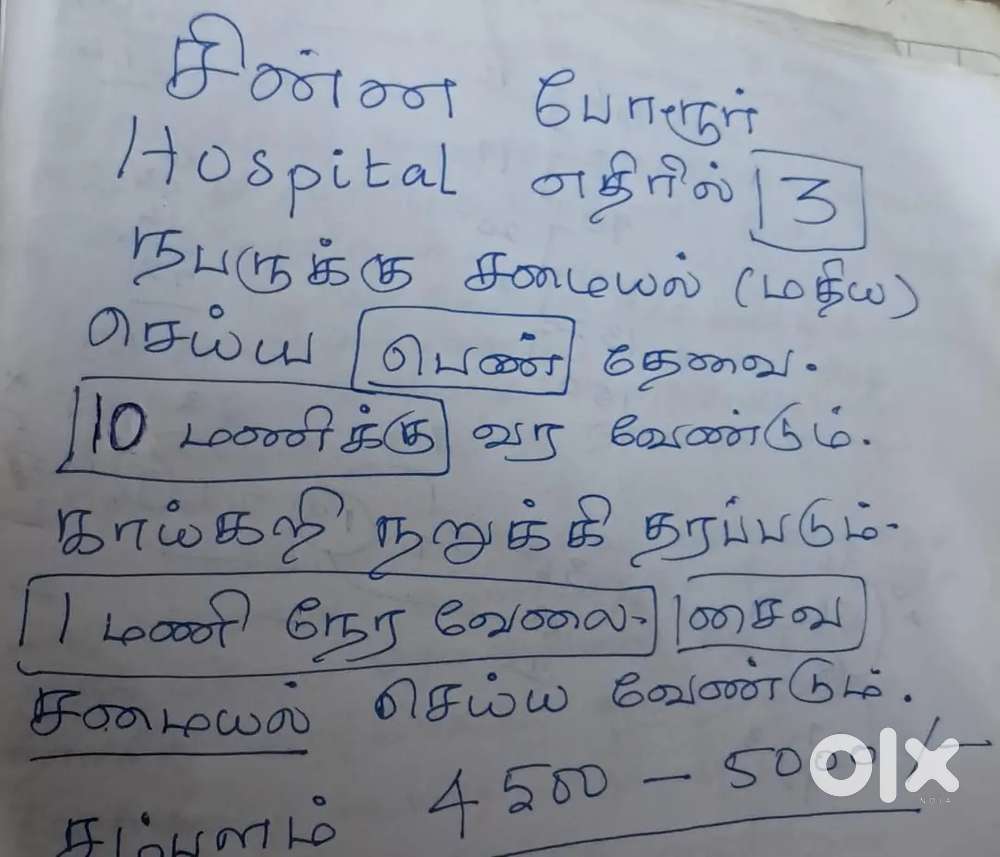 சின்ன போரூர்
Hospital எதிரில் 3
நபருக்கு சமையல் (மதிய)
செய்ய பெண் தேவை.
10 மணிக்கு வர வேண்டும்.
காய்கறி நறுக்கி தரப்படும்.
1 மணி நேர வேலை. சைவ
சமையல் செய்ய வேண்டும்.
சம்பளம் 4500 - 5000/-
olx
INDIA